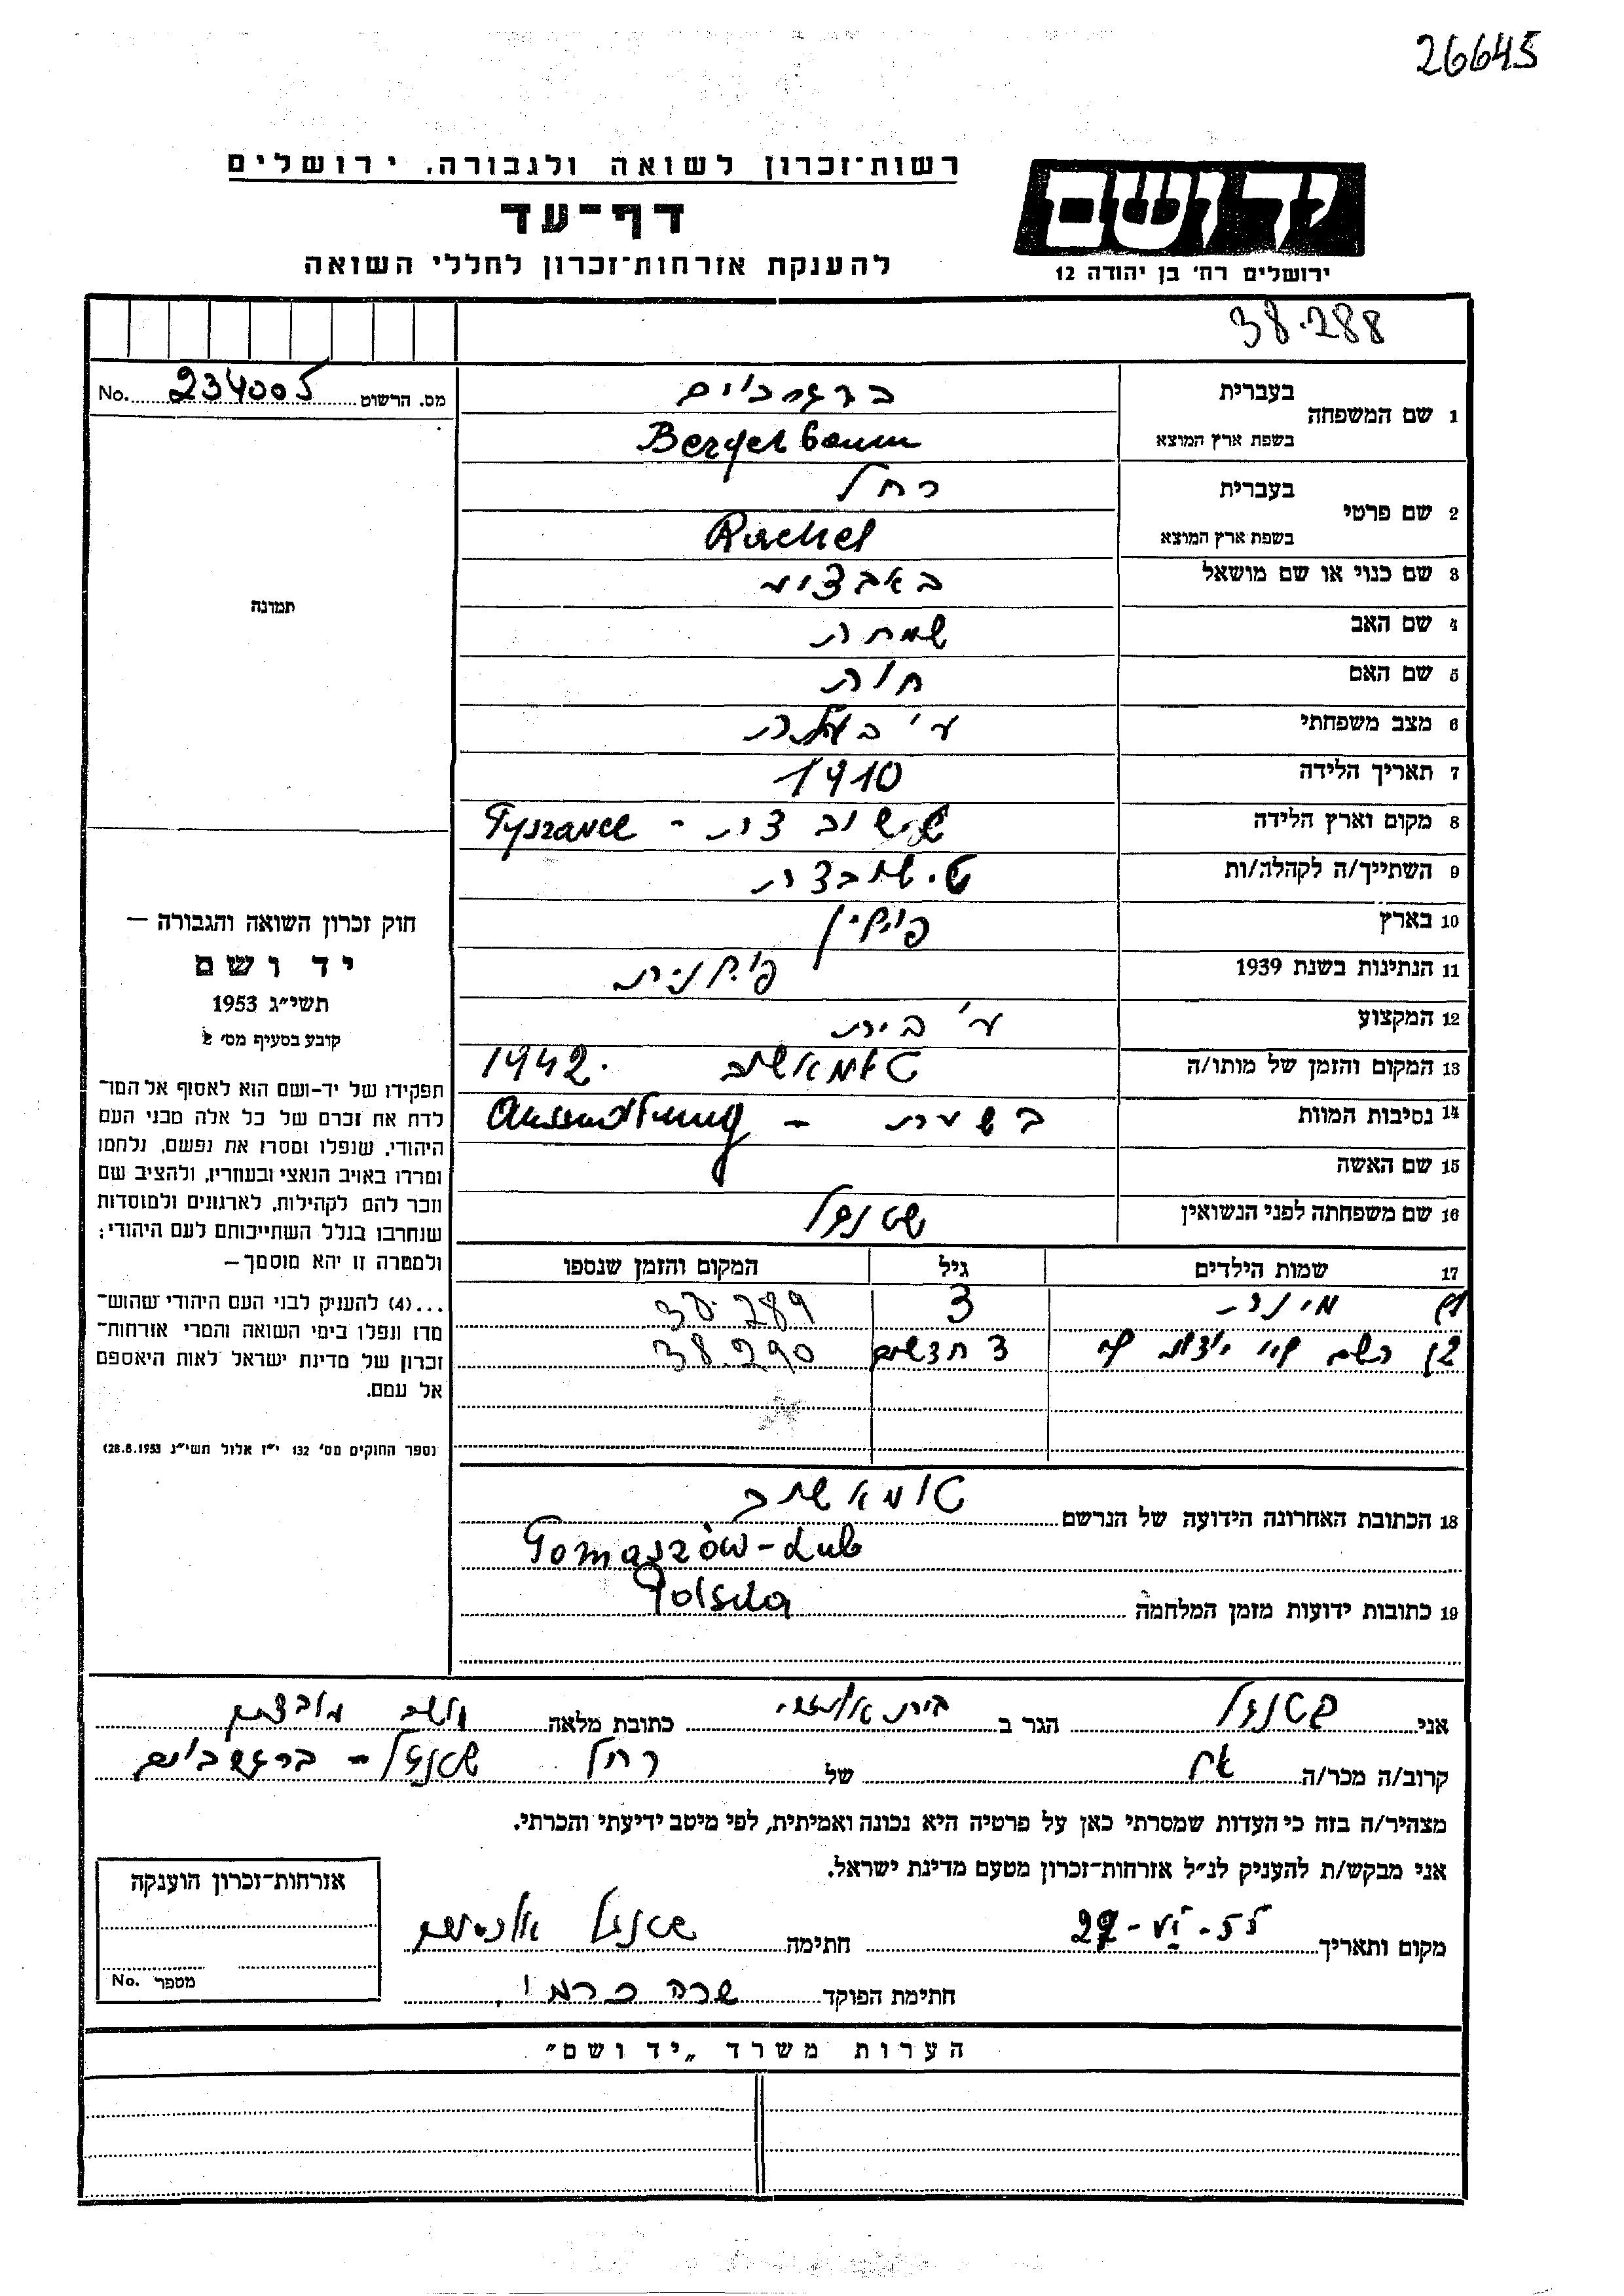 26645
רשות־זכרון לשואה ולגבורה, ירושלים
דף־עד
להענקת אזרחות־זכרון לחללי השואה
יד ושם
ירושלים רח' בן יהודה 12
38.288
מס. הרשום 234005 No.
תמונה
1 שם המשפחה
בעברית
בשפת ארץ המוצא
Bergerbaum
2 שם פרטי
בעברית רחל
בשפת ארץ המוצא Rachel
3 שם כנוי או שם מושאל
4 שם האב שמחה
5 שם האם חוה
6 מצב משפחתי
7 תאריך הלידה 1910
8 מקום וארץ הלידה
9 השתייך/ה לקהלה/ות
10 בארץ פולין
11 הנתינות בשנת 1939 פולנית
12 המקצוע ע' בית
13 המקום והזמן של מותו/ה טאמאשוב 1942.
14 נסיבות המוות בשעת - Aussiedlung
15 שם האשה
16 שם משפחתה לפני הנשואין שטנגל
17 שמות הילדים גיל המקום והזמן שנספו
מינה 3 38.289
3 חדשים 38.290
18 הכתובת האחרונה הידועה של הנרשם טומאשוב
Tomaszów-Lub
Polska
19 כתובות ידועות מזמן המלחמה
חוק זכרון השואה והגבורה —
יד ושם
תשי״ג 1953
קובע בסעיף מס' 2
תפקידו של יד-ושם הוא לאסוף אל המו־
לדת את זכרם של כל אלה מבני העם
היהודי, שנפלו ומסרו את נפשם, נלחמו
ומרדו באויב הנאצי ובעוזריו, ולהציב שם
וזכר להם לקהילות, לארגונים ולמוסדות
שנחרבו בגלל השתייכותם לעם היהודי;
ולמטרה זו יהא מוסמך—
...(4) להעניק לבני העם היהודי שהוש־
מדו ונפלו בימי השואה והמרי אזרחות־
זכרון של מדינת ישראל לאות היאספם
אל עמם.
(ספר החוקים מס' 132 י״ז אלול תשי״ג 28.8.1953)
אני שטנגל הגר ב כתובת מלאה
קרוב/ה מכר/ה אח של רחל שטנגל - ברגרבוים
מצהיר/ה בזה כי העדות שמסרתי כאן על פרטיה היא נכונה ואמיתית, לפי מיטב ידיעתי והכרתי.
אני מבקש/ת להעניק לנ״ל אזרחות־זכרון מטעם מדינת ישראל.
מקום ותאריך 27-VI-55 חתימה שטנגל
חתימת הפוקד שרה כרמי
אזרחות־זכרון הוענקה
מספר No.
הערות משרד „יד ושם״